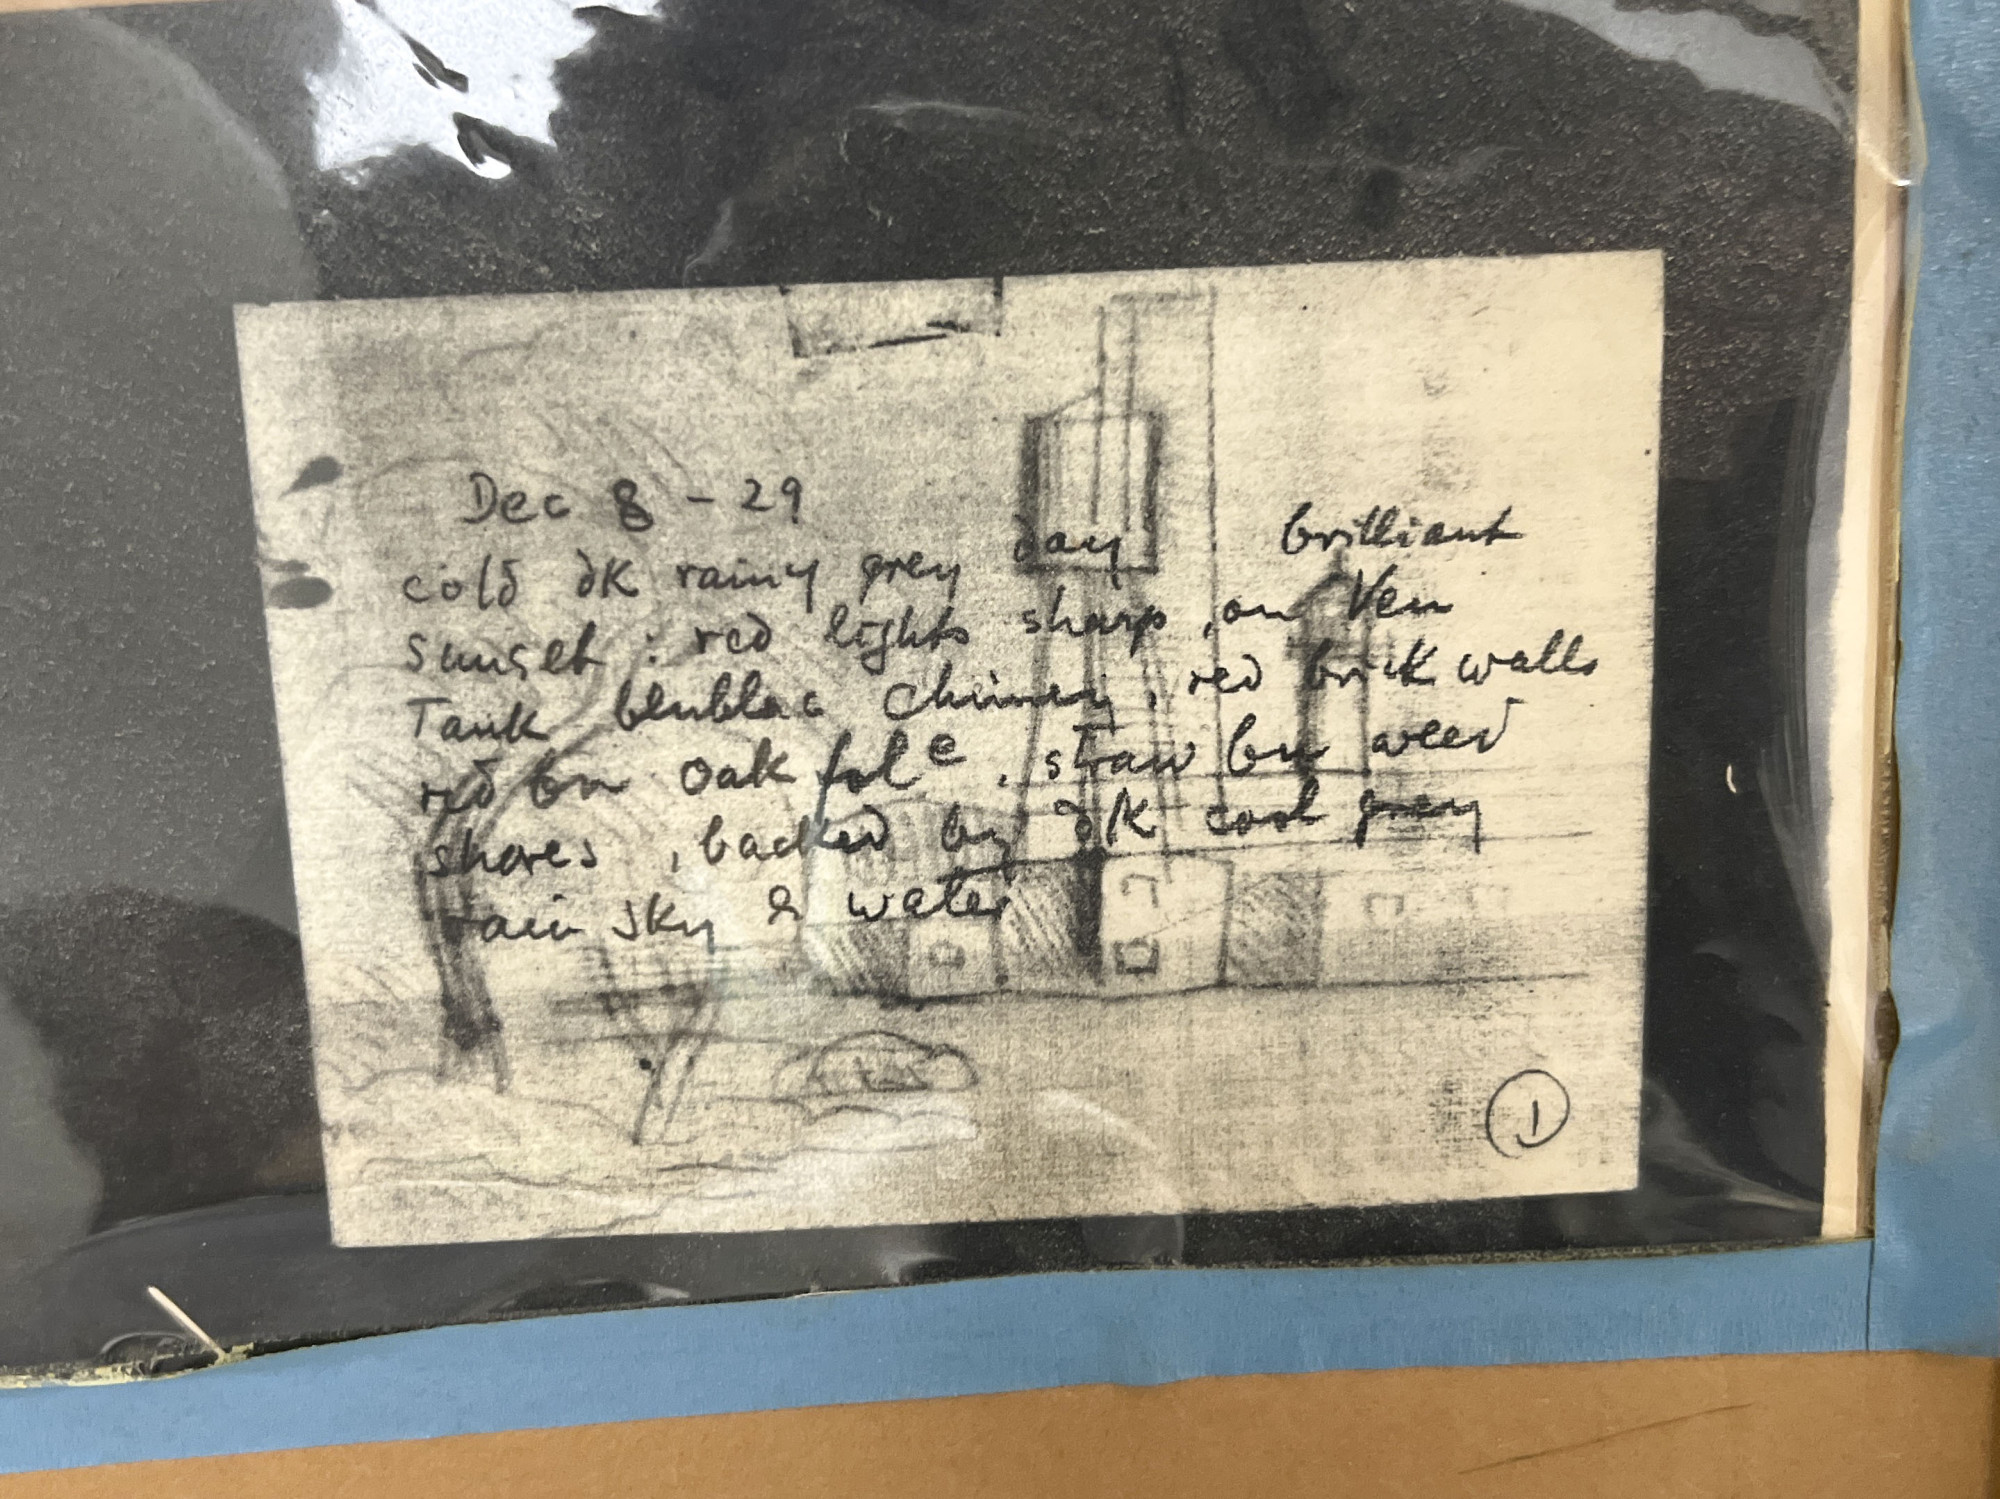 Dec 8 - 29
cold dk rainy grey day brilliant
sunset : red lights sharp , on Ven
Tank blublac chimney, red brick walls
red brn oak fol e , straw brn weed
shores , backed by dk cool grey
rain sky & water
1